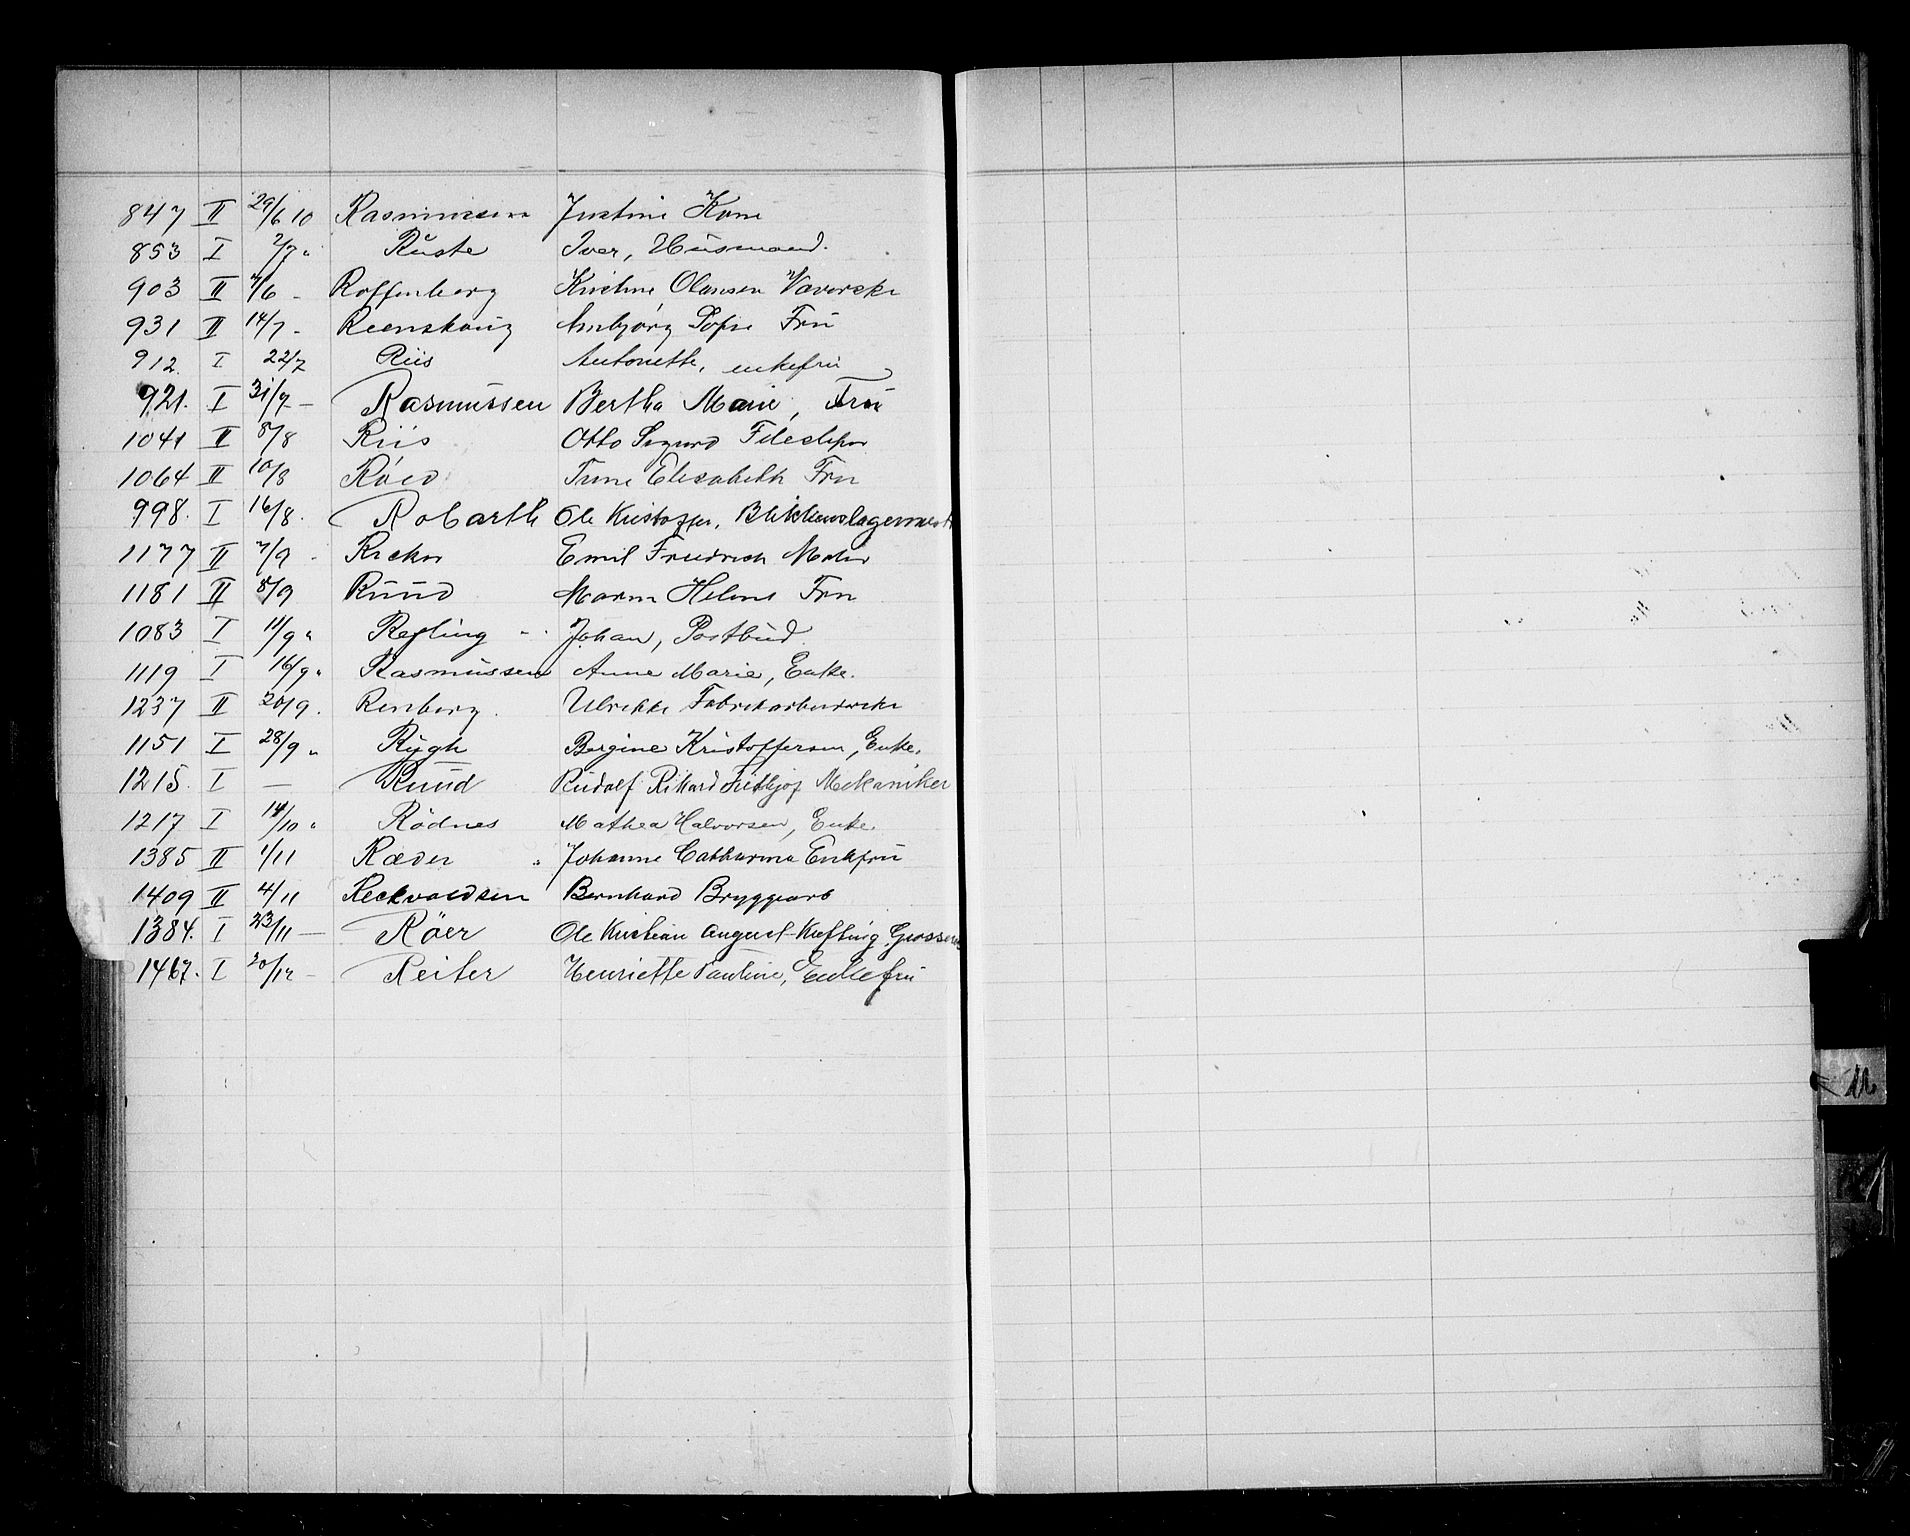 847 II 29/6 10 Rasmussen Justine Kone
853 I 2/7 " Ruste Iver, Husmand.
903 II 7/6 - Roffenberg Kristine Olausen Væverske
931 II 14/7 - Reenskaug Anbjørg Sofie Fru
912. I 22/7 Riis Antonette, enkefru
921. I 31/7 - Rasmussen Bertha Marie, Fru
1041 II 8/8 Riis Otto Sigurd
1064 II 10/8 Røed Trine Elisabeth Fru
998. I 16/8. Robarth Ole Kristoffer, Blikkenslagermest
1177 II 7/9 - Emil Friedrich Maler
1181 II 8/9 Ruud Maren Helene Fru
1083 I 11/9 " Refling Johan, Postbud.
1119 I 16/9 " Rasmussen Anne Marie, Enke.
1237 II 20/9. Renberg. Ulrikke Fabrikarbeiderske
1151 I 28/9 " Rygh Bergine Kristoffersen, Enke.
1215. I — Ruud Rudolf Rikard Frithjof Mekaniker
1217 I 14/10 " Rødnes Mathea Halvorsen, Enke.
1385 II 1/11 Ræder Johanne Catharina Enkefru
1409 II 4/11 Bernhard Bryggearb
1384. I 23/11 — Röer Ole Kristian August Kiefting
1467. I 20/12 - Reiter Henriette Pauline, Enkefru